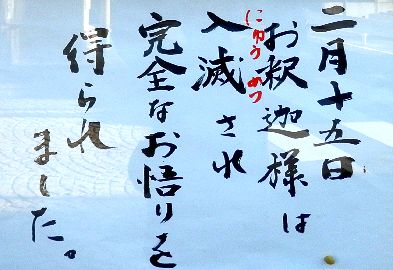 二月十五日
お釈迦様は
入滅され
にゅうめつ
完全なお悟りを
得られ
ました。